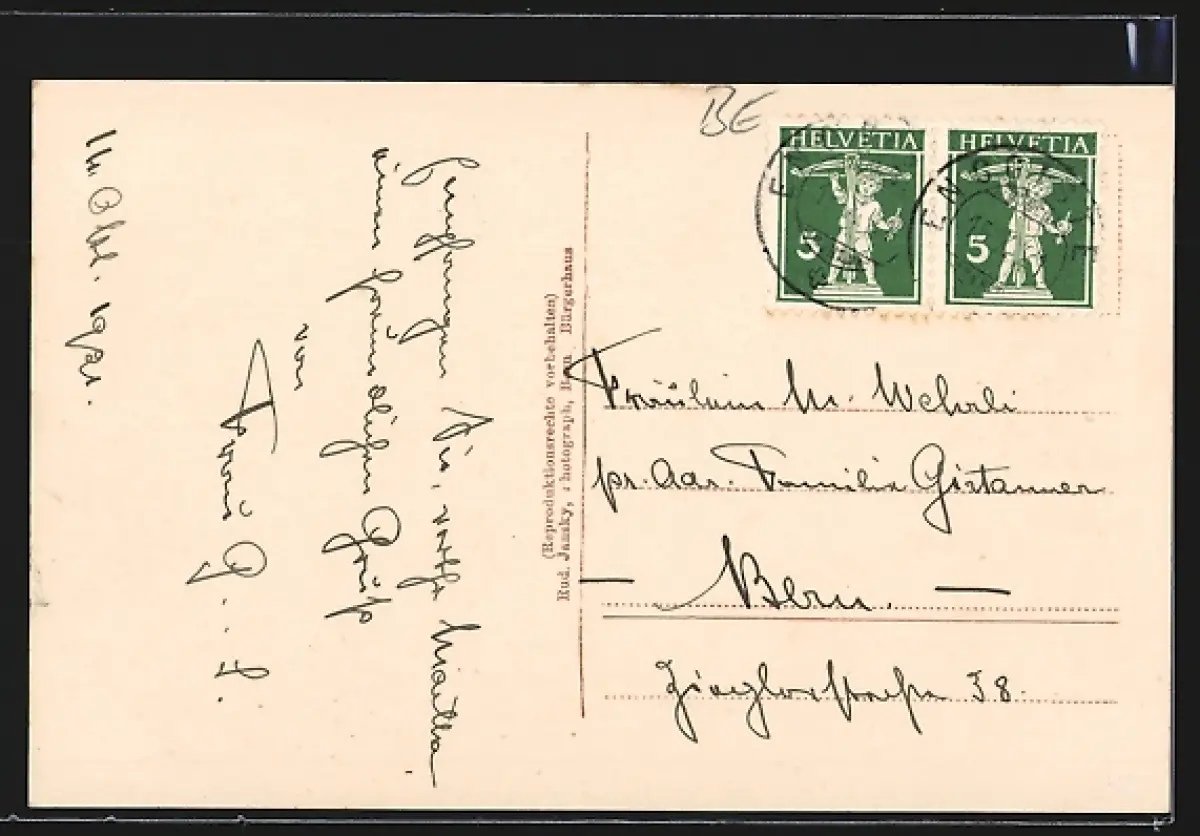 14 Okt. 1921.
Empfangen Sie, werthe Martha
einen freundlichen Gruss
von
Frau G. S.
(Reproduktionsrechte vorbehalten)
Rud. Jansky, Photograph, Bern Bürgerhaus
BE
HELVETIA
5
HELVETIA
5
Fräulein M. Wehrli
pr. Adr. Familie Girtanner
— Bern. —
Zieglerstrasse 38.